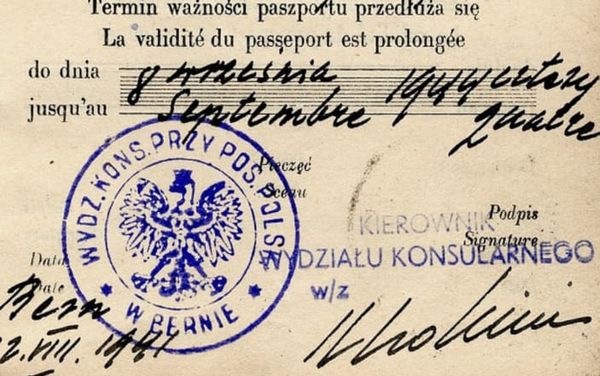 Termin ważności paszportu przedłuża się
La validité du passeport est prolongée
do dnia 8 września 1944 cztery
jusqu'au Septembre quatre
WYDZ. KONS. PRZY POS. POLSK
W BERNIE
Pieczęć
Sceau
Podpis
Signature
KIEROWNIK
WYDZIAŁU KONSULARNEGO
w/z
Data
Date
Bern